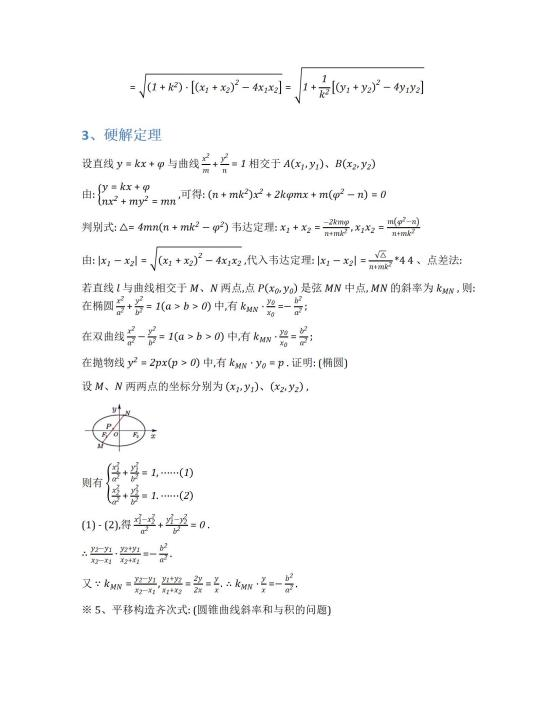 = √((1 + k²) · [(x₁ + x₂)² − 4x₁x₂]) = √(1 + 1/k² [(y₁ + y₂)² − 4y₁y₂])
3、硬解定理
设直线 y = kx + φ 与曲线 x²/m + y²/n = 1 相交于 A(x₁, y₁)、B(x₂, y₂)
由: { y = kx + φ ; nx² + my² = mn ,可得: (n + mk²)x² + 2kφmx + m(φ² − n) = 0
判别式: △= 4mn(n + mk² − φ²) 韦达定理: x₁ + x₂ = −2kmφ/(n+mk²), x₁x₂ = m(φ²−n)/(n+mk²)
由: |x₁ − x₂| = √((x₁ + x₂)² − 4x₁x₂) ,代入韦达定理: |x₁ − x₂| = √△/(n+mk²) *4 4 、点差法:
若直线 l 与曲线相交于 M、N 两点,点 P(x₀, y₀) 是弦 MN 中点, MN 的斜率为 k_MN , 则:
在椭圆 x²/a² + y²/b² = 1(a > b > 0) 中,有 k_MN · y₀/x₀ =− b²/a²;
在双曲线 x²/a² − y²/b² = 1(a > b > 0) 中,有 k_MN · y₀/x₀ = b²/a²;
在抛物线 y² = 2px(p > 0) 中,有 k_MN · y₀ = p . 证明: (椭圆)
设 M、N 两两点的坐标分别为 (x₁, y₁)、(x₂, y₂) ,
y
N
P
F₁ O F₂ x
M
则有 { x₁²/a² + y₁²/b² = 1, ⋯⋯(1)
x₂²/a² + y₂²/b² = 1. ⋯⋯(2)
(1) - (2),得 (x₁²−x₂²)/a² + (y₁²−y₂²)/b² = 0 .
∴ (y₂−y₁)/(x₂−x₁) · (y₂+y₁)/(x₂+x₁) =− b²/a² .
又 ∵ k_MN = (y₂−y₁)/(x₂−x₁), (y₁+y₂)/(x₁+x₂) = 2y/2x = y/x. ∴ k_MN · y/x =− b²/a².
※ 5、平移构造齐次式: (圆锥曲线斜率和与积的问题)